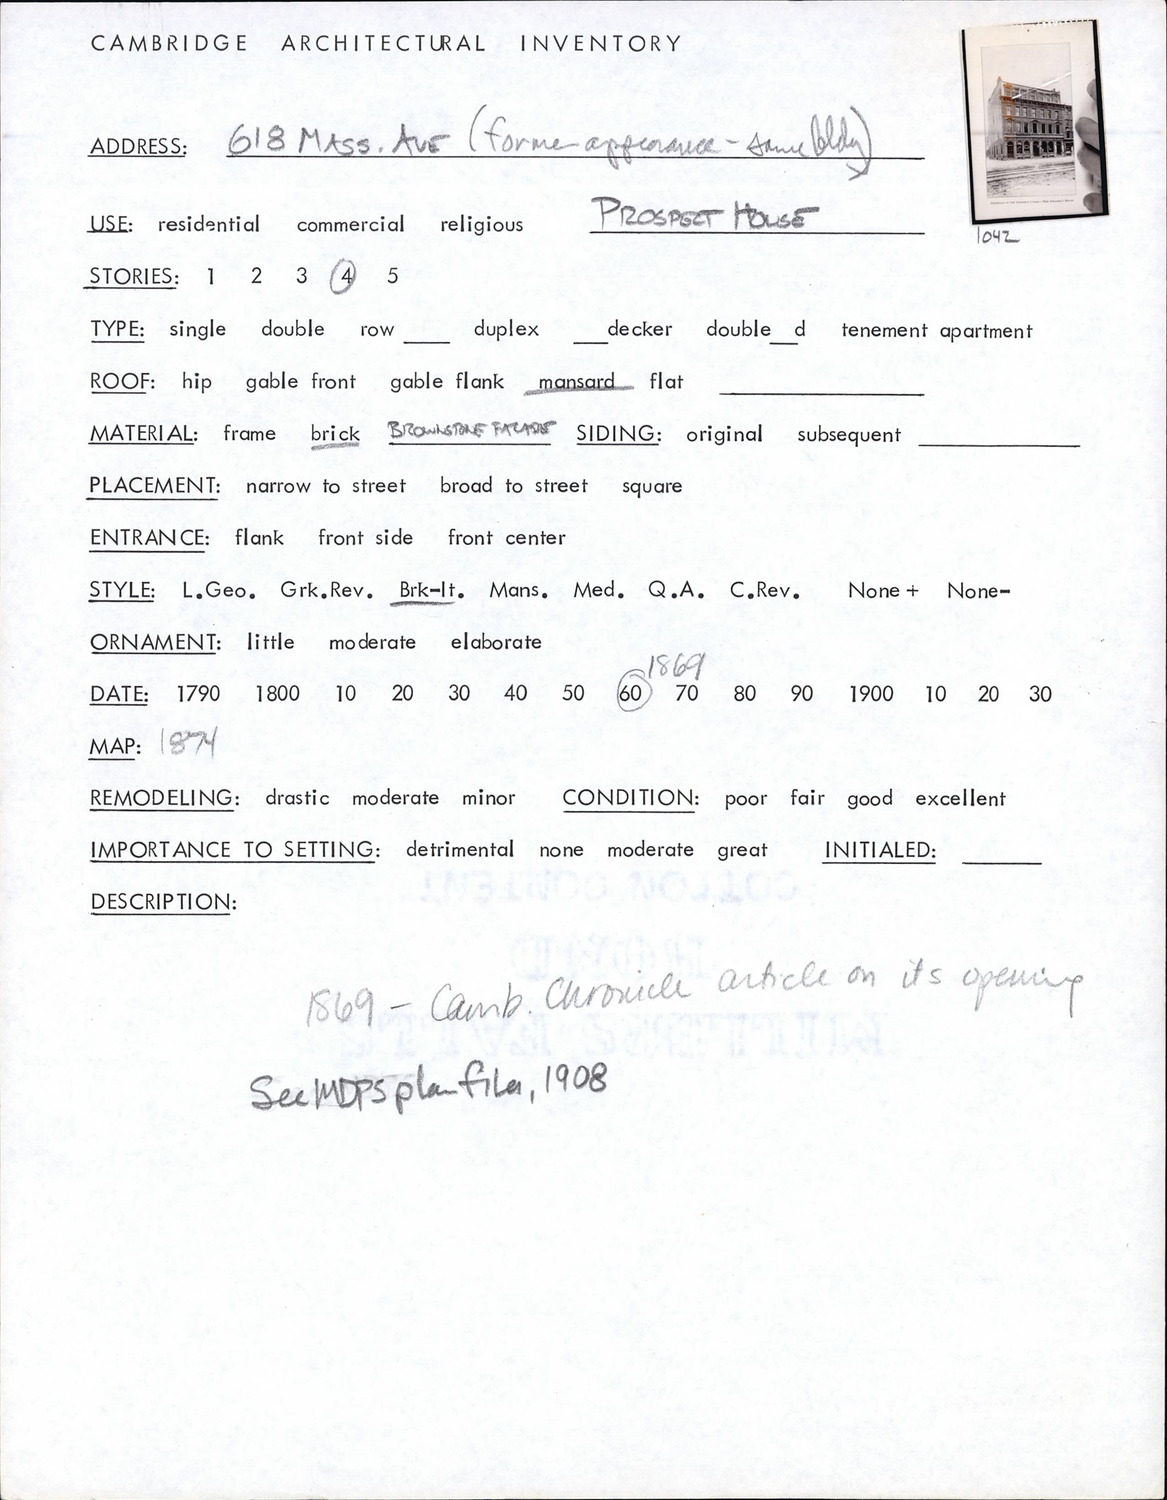 CAMBRIDGE ARCHITECTURAL INVENTORY
ADDRESS: 618 MASS. AVE (former appearance - same bldg)
USE: residential commercial religious PROSPECT HOUSE
1042
STORIES: 1 2 3 4 5
TYPE: single double row ____ duplex ___decker double__d tenement apartment
ROOF: hip gable front gable flank mansard flat
MATERIAL: frame brick BROWNSTONE FACADE SIDING: original subsequent
PLACEMENT: narrow to street broad to street square
ENTRANCE: flank front side front center
STYLE: L.Geo. Grk.Rev. Brk-It. Mans. Med. Q.A. C.Rev. None+ None-
ORNAMENT: little moderate elaborate
1869
DATE: 1790 1800 10 20 30 40 50 60 70 80 90 1900 10 20 30
MAP: 1874
REMODELING: drastic moderate minor CONDITION: poor fair good excellent
IMPORTANCE TO SETTING: detrimental none moderate great INITIALED: ______
DESCRIPTION:
1869 - Camb. Chronicle article on its opening
See MDPS plan files, 1908